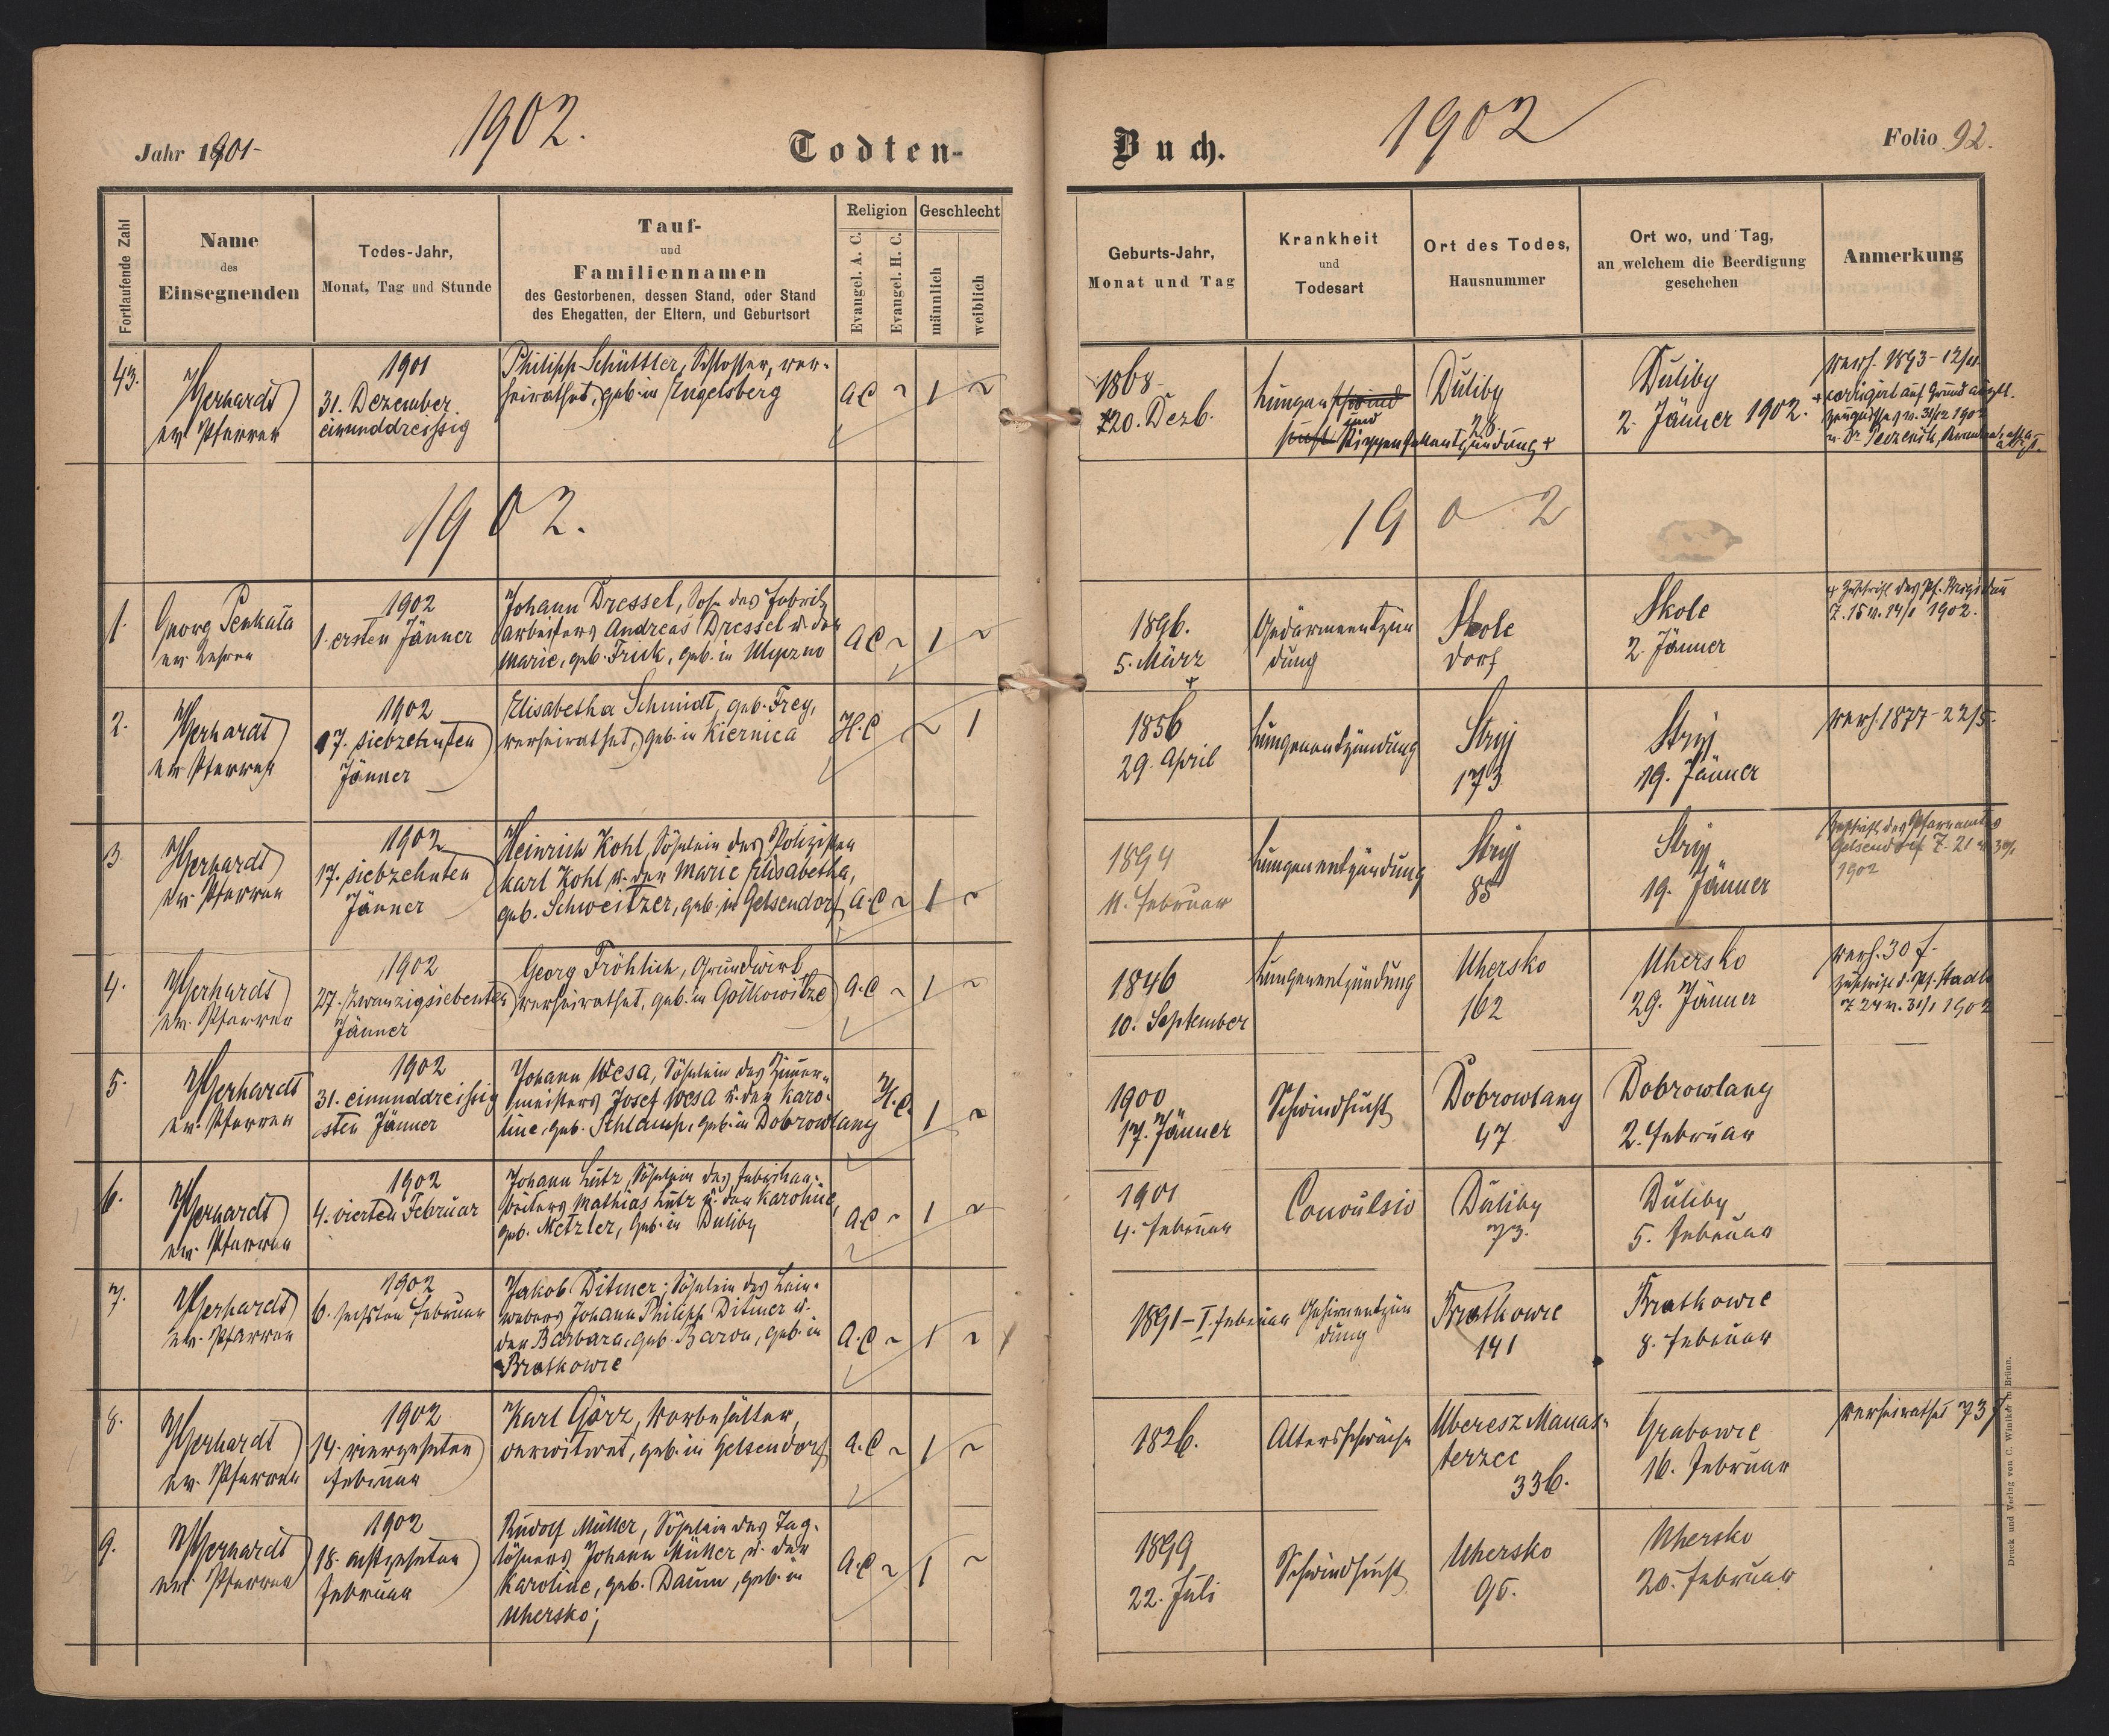 Jahr 1901-
1902.
Todten-
Fortlaufende Zahl
Name
des
Einsegnenden
Todes-Jahr,
Monat, Tag und Stunde
Tauf-
und
Familiennamen
des Gestorbenen, dessen Stand, oder Stand
des Ehegatten, der Eltern, und Geburtsort
Religion
Evangel. A. C.
Evangel. H. C.
Geschlecht
männlich
weiblich
43.
Gerhardt
ev. Pfarrer
1901
31. Dezember
einunddreissig
Philipp Schüttler, Schlosser, ver-
heirathet, geb. in Engelsberg
A C ~ 1 ~
1902.
1.
Georg Penkala
ev. Lehrer
1902
1. ersten Jänner
Johann Dressel, Sohn des Fabriks
arbeiters Andreas Dressel u. der
Marie, geb. Frick, geb. in
A C ~ 1 ~
2.
Gerhardt
ev. Pfarrer
1902
17. siebzehnten
Jänner
Elisabetha Schmidt, geb. Frey,
verheirathet, geb. in Kiernica
H. C ~ 1
3
Gerhardt
ev. Pfarrer
1902
17. siebzehnten
Jänner
Heinrich Kohl, Söhnlein des Polizisten
Karl Kohl u. der Marie Elisabetha,
geb. Schweitzer, geb. in Gelsendorf
A. C ~ 1 ~
4.
Gerhardt
ev. Pfarrer
1902
27. zwanzigsiebenten
Jänner
Georg Fröhlich, Grundwirt,
verheirathet, geb. in Golkowitze
A. C ~ 1 ~
5.
Gerhardt
ev. Pfarrer
1902
31. einunddreissig
sten Jänner
Johann Wesa, Söhnlein des Zimmer-
meisters Josef Wesa u. der Karo-
line, geb. Schlamp, geb. in Dobrowlany
H. C. 1 ~
6.
Gerhardt
ev. Pfarrer
1902
4. vierten Februar
Johann Lutz, Söhnlein des
Mathias Lutz u. der Karoline,
geb. Metzler, geb. in Duliby
A C ~ 1 ~
7.
Gerhardt
ev. Pfarrer
1902
6. sechsten Februar
Jakob Ditmer, Söhnlein des Lein-
webers Johann Philipp Ditmer u.
der Barbara, geb. Baron, geb. in
Bratkowce
A. C ~ 1 ~
8.
Gerhardt
ev. Pfarrer
1902
14. vierzehnten
Februar
Karl Görz, Vorbehälter,
verwitwet, geb. in Gelsendorf
A. C ~ 1 ~
9.
Gerhardt
ev. Pfarrer
1902
18. achtzehnten
Februar
Rudolf Müller, Söhnlein des Tag-
löhners Johann Müller u. der
Karoline, geb. Daum, geb. in
Uhersko;
A. C ~ 1 ~
Buch.
1902
Folio 92.
Geburts-Jahr,
Monat und Tag
Krankheit
und
Todesart
Ort des Todes,
Hausnummer
Ort wo, und Tag,
an welchem die Beerdigung
geschehen
Anmerkung
1868
20. Dezb.
Lungenschwind
und
sucht Rippenfellentzündung +
Duliby
28.
Duliby
2. Jänner 1902.
verh. 1893 - 12/11
+ corrigirt auf Grund ärztl.
1902
1902
1896.
5. März
+
Gedärmentzün
dung
Skole
dorf
Skole
2. Jänner
+ Zuschrift des Pf. Brigidau
Z. 15 v. 14/1 1902.
1856
29. April
Lungenentzündung
Stryj
173
Stryj
19. Jänner
verh. 1877 - 22/5.
1894
11. Februar
Lungenentzündung
Stryj
85
Stryj
19. Jänner
Zuschrift des Pfarramtes
Gelsendorf Z. 21 v. 30/1
1902
1846
10. September
Lungenentzündung
Uhersko
162
Uhersko
29. Jänner
verh. 30 J.
Zuschrift d. Pf. Stadlo
Z 24 v. 31/1 1902
1900
17. Jänner
Schwindsucht
Dobrowlany
47
Dobrowlany
2. Februar
1901
4. Februar
Convulsio
Duliby
73.
Duliby
5. Februar
1891 - I. Februar
Gehirnentzün
dung
Bratkowce
141
Bratkowce
8. Februar
1826.
Altersschwäche
Uheresz Manas-
terzec
336.
Grabowce
16. Februar
verheirathet 73 J
1899
22. Juli
Schwindsucht
Uhersko
95.
Uhersko
20. Februar
Druck und Verlag von C. Winiker in Brünn.